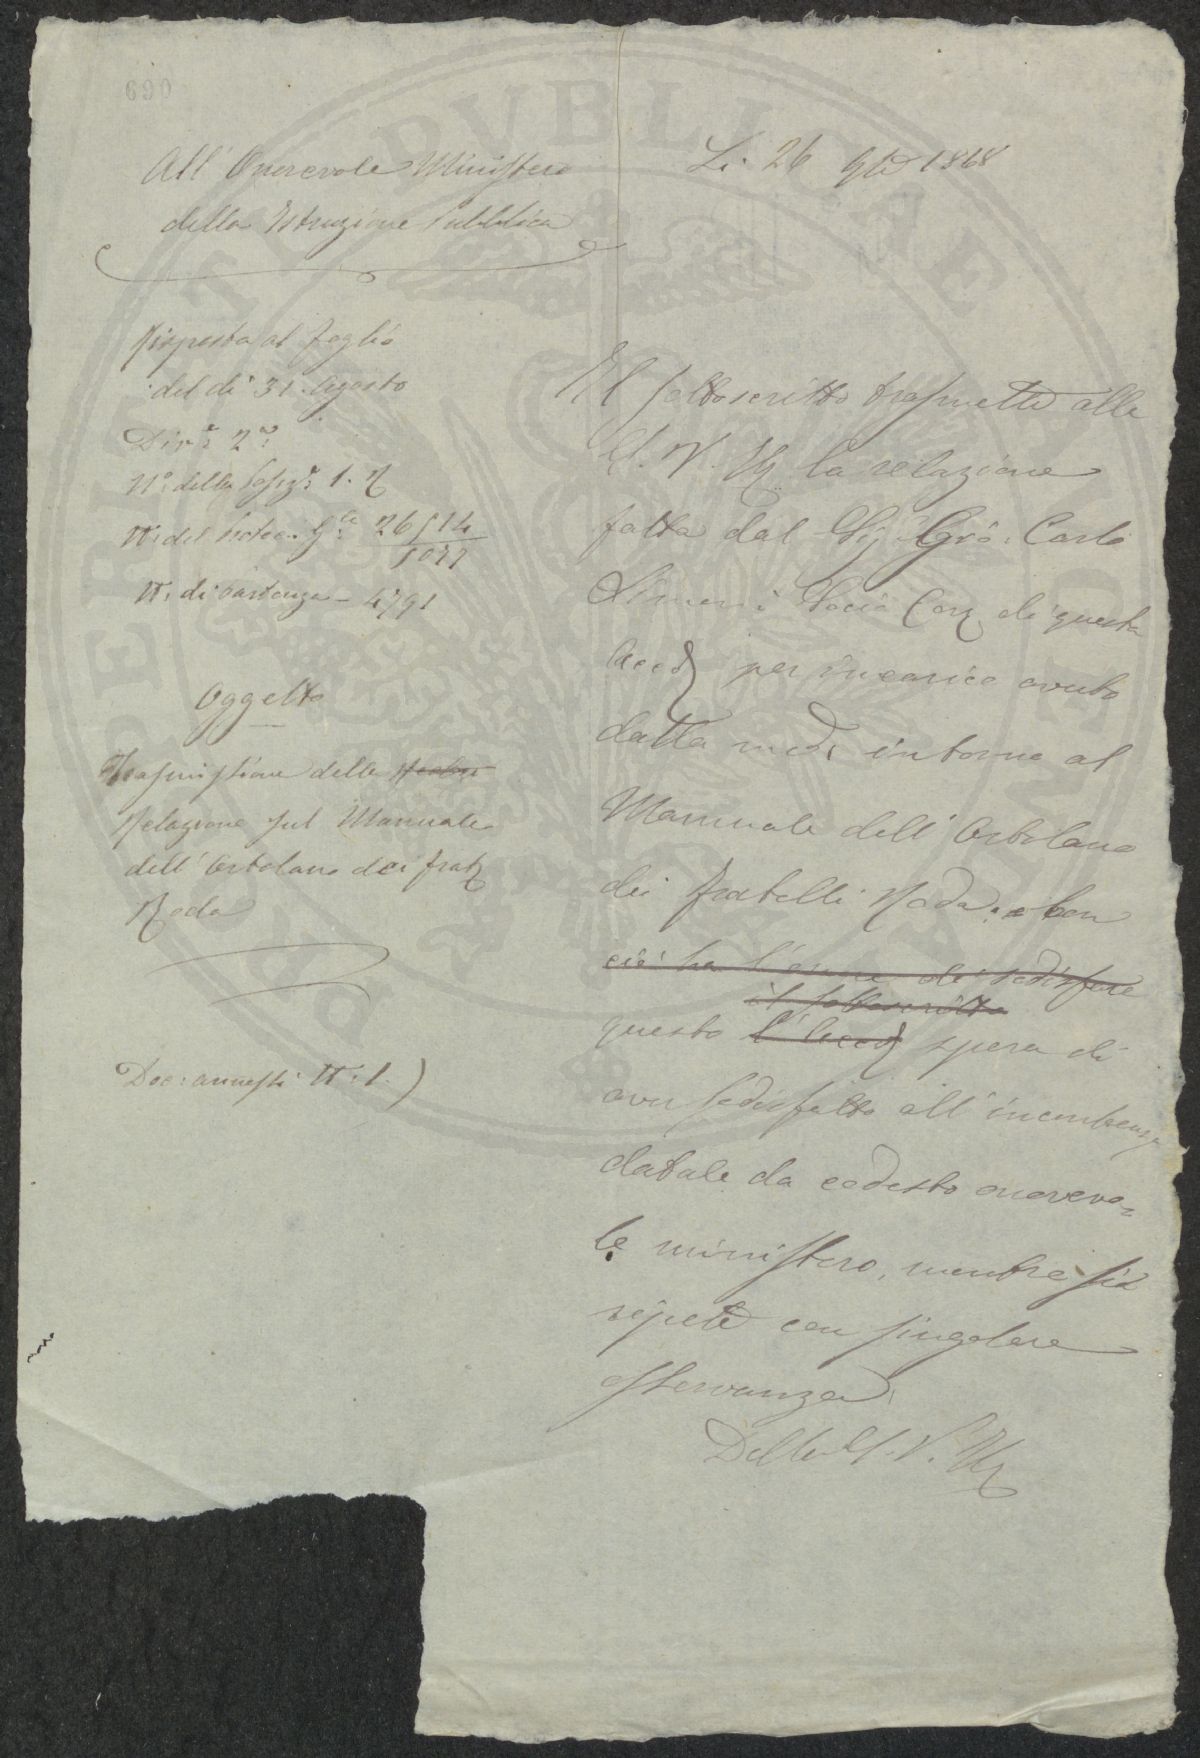 690
All' Onorevole Ministero
della Istruzione Pubblica
Risposta al foglio
del di 31. Agosto
Div.e 2.a
N.o della Posiz.e 1.
N. del Protoc. G.le 26514
1077
N. di partenza - 4791
Oggetto
Trasmissione della
Relazione sul Manuale
dell' Ortolano dei frat
Roda
Doc: annessi N: 1.)
Li. 26 1868
Il sottoscritto trasmette alla
S. V. Ill la relazione
fatta dal Sig. Gio. Carlo
Simeni Socio Corr di questa
Accad per incarico avuto
dalla med. intorno al
Manuale dell' Ortolano
dei fratelli Roda. e con
ciò ha l'onore di sodisfare
il sottoscritto
questo l'Accad spera di
aver sodisfatto all' incombenza
datale da codesto onorevo-
le ministero, mentre si
ripete con singolare
osservanza
Della S. V. Ill